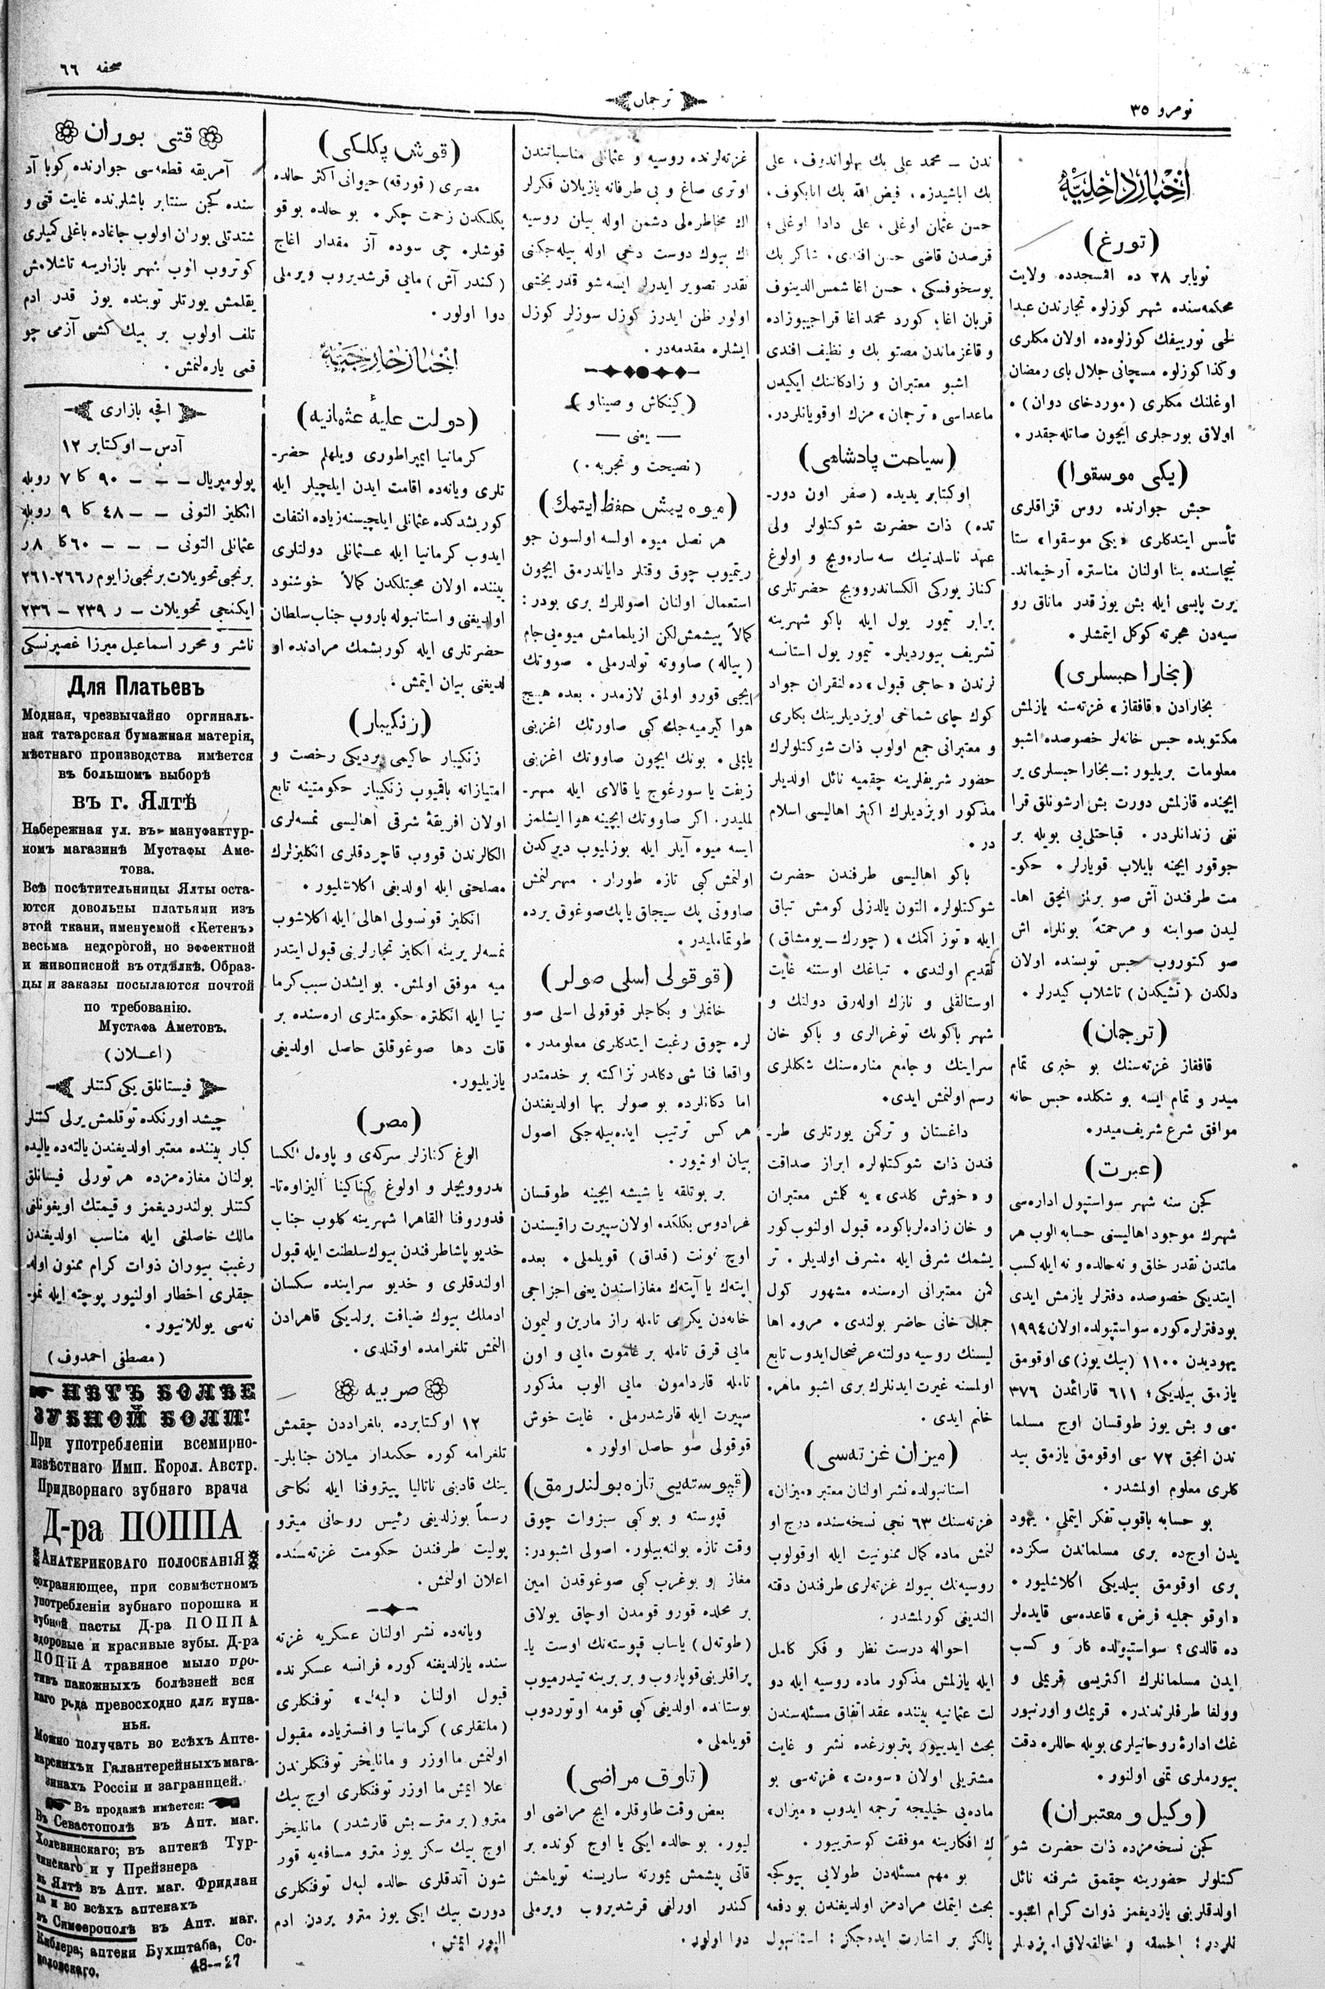 نومرو ٣٥
ترجمان
صحفه ٦٦
اخبار داخلیه
(تورغ)
نویابر ٢٨ ده اقمسجدده ولایت
محکمه‌سنده شهر کوزلوه تجارندن عبدا
اوغلنك مکلری (موردخای دوان)
اولاق بورجلری ایچون صاتله‌جقدر.
(یکی موسقوا)
حبش جوارنده روس قزاقلری
تأسس ایتدکلری «یکی موسقوا» ستا
نیچاسنده بنا اولنان مناستره آرخیماند-
یرت پایسی ایله بش یوز قدر ماناق رو
سیه‌دن هجرته کوکل ایتمشلر.
(بخارا حبسلری)
بخارادن «قافقاز» غزته‌سنه یازلمش
مکتوبده حبس خانه‌لر خصوصده اشبو
معلومات بریلیور:ــ بخارا حبسلری یر
ایچنده قازلمش دورت بش ارشونلق قرا
نقی زندانلردر. قباحتلی‌یی بویله بر
جوقور ایچنه بایلاب قویارلر. حکو-
مت طرفندن آش صو برلمز انجق اها-
لیدن صوابنه و مرحمتاً بونلراه اش
صو کتوروب حبس توبسنده اولان
دلکدن (تشیکدن) تاشلاب کیدرلر.
(ترجمان)
قافقاز غزته‌سنك بو خبری تمام
میدر و تمام ایسه بو شکلده حبس خانه
موافق شرع شریف‌میدر.
(عبرت)
کجن سنه شهر سواستپول اداره‌سی
شهرك موجود اهالیسنی حسابه الوب هر
ماتدن نقدر خلق و نه حالده و نه ایله کسب
ایتدیکی خصوصده دفترلر یازمش ایدی
بودفترلره کوره سواستپولده اولان ١٩٩٤
یهودیدن ١١٠٠ (بیك یوز)ی اوقومق
یازمق بیلدیکی؛ ٦١١ قارائمدن ٣٧٦
سی و بش یوز طوقسان اوج مسلما
ندن انجق ٧٢ سی اوقومق یازمق بیلد
کلری معلوم اولمشدر.
بو حسابه باقوب تفکر ایتملی. یهود
یدن اوج‌ده بری مسلماندن سکزده
بری اوقومق بیلدیکی اکلاشلیور.
«اوقو جمله‌یه فرض» قاعده‌سی قایده‌لر
ده قالدی؟ سواستپولده کار و کسب
ایدن مسلمانلرك اکثریسی قریملی و
وولغا طرفلرندندر. قریمك و اورنبور
غك ادارهٔ روحانیلری بویله حاللره دقت
بیورملری تمنی اولنور.
(وکیل و معتبران)
کجن نسخه‌مزده ذات حضرت شو
کتلولر حضورینه چقمق شرفنه نائل
اولدقلرینی یازدیغمز ذوات کرام اشبو-
ندن ــ محمد علی بك بهلواندوف، علی
بك اباشیدزه، فیض الله بك انابکوف،
حسن عثمان اوغلی، علی دادا اوغلی؛
قرصدن قاضی حسن افندی، شاکر بك
یوسخوفسکی، حسن اغا شمس‌الدینوف
قربان اغا؛ کورد محمد اغا قراجیبوزاده
و قاغزماندن مصتو بك و نظیف افندی
اشبو معتبران و زادکاننك ایکیدن
ماعداسی «ترجمان» مزك اوقویانلردر.
(سیاحت پادشاهی)
اوکتابر یدیده (صفر اون دور-
تده) ذات حضرت شوکتلولر ولی
عهد ناسلدنیك سه‌ساره‌ویچ و اولوغ
کناز یورکی الکساندروویچ حضرتلری
برابر تیمور یول ایله باکو شهرینه
تشریف بیوردیلر. تیمور یول استانسه
لرندن «حاجی قبول» ده لنقران جواد
کوك چای شماخی اویزدیلرینك بکاری
و معتبرانی جمع اولوب ذات شوکتلولرك
حضور شریفلرینه چقمیه نائل اولدیلر
مذکور اویزدیلرك اکثر اهالیسی اسلام
در.
باکو اهالیسی طرفندن حضرت
شوکتلولره التون یالدزلی کومش تباق
ایله «توز اکمك» (چورك ــ یومشاق)
تقدیم اولندی. تباغك اوستنه غایت
اوستالقلی و نازك اوله‌رق دولتك و
شهر باکونك توغرالری و باکو خان
سراینك و جامع مناره‌سنك شکللری
رسم اولنمش ایدی.
داغستان و ترکمن یورتلری طر-
فندن ذات شوکتلولره ابراز صداقت
و «خوش کلدی» یه کلمش معتبران
و خان زاده‌لر باکوده قبول اولنوب کور
یشمك شرفی ایله مشرف اولدیلر. تر
کمن معتبرانی اره‌سنده مشهور کول
جمال خانی حاضر بولندی. مروه اها
لیسنك روسیه دولتنه عرضحال ایدوب تابع
اولمسنه غیرت ایدنلرك بری اشبو ماهره
خانم ایدی.
(میزان غزته‌سی)
استانبولده نشر اولنان معتبر «میزان»
غزته‌سنك ٦٣ نجی نسخه‌سنده درج او
لنمش ماده کمال ممنونیت ایله اوقولوب
روسیه‌نك بیوك غزته‌لری طرفندن دقته
الندیغی کورلمشدر.
احواله درست نظر و فکر کامل
ایله یازلمش مذکور ماده روسیه ایله دو
لت عثمانیه بیننده عقد اتفاق مسئله‌سندن
بحث ایدییور پتربورغده نشر و غایت
مشتریلی اولان «سوه‌ت» غزته‌سی بو
ماده‌یی خیلیجه ترجمه ایدوب «میزان»
ك افکارینه موفقت کوسترییور.
بو مهم مسئله‌دن طولایی بیوکجه
بحث ایتمك مرادمز اولدیغندن بو دفعه
یالکز بر اشارت ایده‌جکز: استانبول
غزته‌لرنده روسیه و عثمانلی مناسباتندن
اوتری صاغ و بی طرفانه یازیلان فکرلر
اك مخاطره‌لی دشمن اوله بیلن روسیه
نك بیوك دوست دخی اوله بیله‌جکنی
نقدر تصویر ایدرلر ایسه شو قدر یخشی
اولور ظن ایدرز کوزل سوزلر کوزل
ایشلره مقدمه‌در.
(کینکاش و صیناو)
ــ یعنی ــ
(نصیحت و تجربه.)
(میوه یمیش حفظ ایتمك)
هر نصل میوه اولسه اولسون جو
ریتمیوب چوق وقتلر دایاندرمق ایچون
استعمال اولنان اصوللرك بری بودر:
کمالاً پیشمش لکن ازیلمامش میوه‌یی جام
(پیاله) صاووته تولدرملی. صووتك
ایچی قورو اولمق لازمدر. بعده هیچ
هوا کیرمیه‌جك کبی صاوتك اغزینی
یاپملی. بونك ایچون صاووتك اغزینی
زیفت یا سورغوج یا قالای ایله مهر-
لملیدر. اکر صاووتك ایچینه هوا ایشلمز
ایسه میوه آیلر ایله بوزلمیوب دیرکدن
اولنمش کبی تازه طورار. مهرلنمش
صاووتی پك سیجاق یا پك صوغوق یرده
طوتمامالیدر.
(قوقولی اسلی صولر)
خانملر و بکاجلر قوقولی اسلی صو
لره چوق رغبت ایتدکلری معلومدر.
واقعا فنا شی دکلدر نزاکته بر خدمتدر
اما دکانلرده بو صولر بها اولدیغندن
هر کس ترتیب ایده‌بیله‌جکی اصول
بیان اولنیور.
بر بوتلقه یا شیشه ایچینه طوقسان
غرادوس بکلکده اولان سپیرت راقیسندن
اوچ فونت (قداق) قویلملی. بعده
ایتدك یا آپته‌ك مغازاسندن یعنی اجزاجی
خانه‌دن یکرمی تامله راز مارین و لیمون
مایی قرق تامله برغاموت مایی و اون
تامله قاردامون مایی الوب مذکور
سپیرت ایله قارشدرملی. غایت خوش
قوقولی صو حاصل اولور.
(قپوسته‌یی تازه بولندرمق)
قپوسته و بوکبی سبزوات چوق
وقت تازه بوانه‌بیلور. اصولی اشبودر:
مغاز و بوغرب کبی صوغوقدن امین
بر محلده قورو قومدن اوچاق یولاق
(طوته‌ل) یاساب قپوسته‌نك اوست یا-
پراقلرینی قوپاروب و بر برینه تیدرمیوب
بوستانده اولدیغی کبی قومه اوتوردوب
قویلملی.
(تاوق مراضی)
بعض وقت طاوقلره ایج مراضی او
لیور. بو حالده ایکی یا اوچ کونده بر
قاتی پیشمش یمورته ساریسنه تویلمش
کندر اورلغی قرشدیروب ویرملی
دوا اولور.
(قوش پکلکی)
مصری (قورقه) حیوانی اکثر حالده
بکلکدن زحمت چکر. بو حالده بو قو
قوشلره چی سوده آز مقدار اغاج
(کندر آش) مایی قرشدیروب ویرملی
دوا اولور.
اخبار خارجیه
(دولت علیهٔ عثمانیه)
کرمانیا ایمپراطوری ویلهلم حضر-
تلری ویانه‌ده اقامت ایدن ایلچیلر ایله
کوریشدکده عثمانلی ایلچیسنه زیاده التفات
ایدوب کرمانیا ایله عــثمانلی دولتلری
بیننده اولان محبتلکدن کمالاً خوشنود
اولدیغنی و استانبوله باروب جناب سلطان
حضرتلری ایله کوریشمك مرادنده او
لدیغنی بیان ایتمش.
(زنکیبار)
زنکیبار حاکیمی بردیکی رخصت و
امتیازانه باقمیوب زنکیبار حکومتینه تابع
اولان افریقهٔ شرقی اهالیسی نمسه‌لری
الکالرندن قووب قاچردقلری انکلیزلرك
مصلحتی ایله اولدیغی اکلاشلیور.
انکلیز قونسولی اهالی ایله اکلاشوب
نمسه‌لر یرینه انکلیز تجارلرینی قبول ایتدر
میه موفق اولمش. بو ایشدن سبب کرما
نیا ایله انکلتره حکومتلری اره‌سنده بر
قات دها صوغوقلق حاصل اولدیغی
یازیلیور.
(مصر)
الوغ کنازلر سرکه‌ی و پاوه‌ل الکسا
ندروویچلر و اولوغ کناکینا الیزاوه‌تا-
فدوروفنا القاهرا شهرینه کلوب جناب
خدیو پاشا طرفندن بیوك سلطنت ایله قبول
اولندقلری و خدیو سراینده سکسان
ادملك بیوك ضیافت برلدیکی قاهرادن
النمش تلغرامده اوقتلدی.
صربیه
١٢ اوکتابرده بلغراددن چقمش
تلغرامه کوره حکمدار میلان جنابلر-
ینك قادینی ناتالیا پیتروفنا ایله نکاحی
رسماً بوزلدیغی رئیس روحانی میترو
پولیت طرفندن حکومت غزته‌سنده
اعلان اولنمش.
ویانه‌ده نشر اولنان عسکریه غزته
سنده یازلدیغنه کوره فرانسه عسکرنده
قبول اولنان «لبه‌ل» توفنکلری
(ملتقلری) کرمانیا و افستریاده مقبول
اولنمش ماوزر و مانلیخر توفنکلرندن
علا ایمش ماوزر توفنکلری اوچ بیك
مترو (بر متر ــ بش قارشدر) مانلیخر
اوچ بیك سکز یوز مترو مسافه‌یه قور
شون آندقلری حالده لبه‌ل توفنکلری
دورت بیك ایکی یوز مترو یردن ادم
الیور ایمش.
قتی بوران
آمریقه قطعه‌سی جوارنده کوبا آد
سنده کجن سنتابر باشلرنده غایت قتی و
شتدتلی بوران اولوب جاغاده باغلی کمیلری
کوتروب اوب شهر بازاریسه تاشلامش
یقلمش یورتلر توبنده یوز قدر ادم
تلف اولوب بر بیك کشی آزمی چو
قمی یاره‌لنمش.
اقچه بازاری
آدس ــ اوکتابر ١٢
پولومپریال ــ ــ ــ ٩٠ کا ٧ روبله
انکلیز التونی ــ ــ ٤٨ کا ٩ روبله
عثمانلی التونی ــ ــ ــ ٦٠ کا ٨ ر
برنجی تحویلات برنجی زایوم ر٢٦٦-٢٦١
ایکنجی تحویلات ــ ر ٢٣٩ ــ ٢٣٦
ناشر و محرر اسماعیل میرزا غصپرنسکی
Для Платьевъ
Модная, чрезвычайно оргиналь-
ная татарская бумажная матерія,
мѣстнаго производства имѣется
въ большомъ выборѣ
въ г. Ялтѣ
Набережная ул. въ мануфактур-
номъ магазинѣ Мустафы Аме-
това.
Всѣ посѣтительницы Ялты оста-
ются довольны платьями изъ
этой ткани, именуемой «Кетенъ»
весьма недорогой, но эффектной
и живописной въ отдѣлкѣ. Образ-
цы и заказы посылаются почтой
по требованію.
Мустафа Аметовъ.
(اعلان)
فیستانلق یکی کتنلر
چیشد اورنکده توقلمش یرلی کتنلر
کبار بیننده معتبر اولدیغندن یالته‌ده یالیده
بولنان مغازه‌مزده هر تورلی فیستانلق
کتنلر بولندردیغمز و قیمتك اویغونلغی
مالك خاصلغی ایله مناسب اولدیغندن
رغبت بیوران ذوات کرام ممنون اوله-
جقلری اخطار اولنیور پوچته ایله نمو-
نه‌سی یوللانیور.
(مصطفی احمدوف)
НѢТЪ БОЛѢЕ
ЗУБНОЙ БОЛИ!
При употребленіи всемирно-
извѣстнаго Имп. Корол. Австр.
Придворнаго зубнаго врача
Д-ра ПОППА
АНАТЕРИКОВАГО ПОЛОСКАНІЯ
сохраняющее, при совмѣстномъ
употребленіи зубнаго порошка и
зубной пасты Д-ра ПОППА
здоровые и красивые зубы. Д-ра
ПОППА травяное мыло про-
тивъ накожныхъ болѣзней вся
каго рода превосходно для купа-
нья.
Можно получать во всѣхъ Апте-
карскихъ и Галантерейныхъ мага-
зинахъ Россіи и заграницей.
Въ продажѣ имѣется:
Въ Севастополѣ въ Апт. маг.
Холевинскаго; въ аптекѣ Тур-
чинскаго и у Прейзнера
въ Ялтѣ въ Апт. маг. Фридлан
да и во всѣхъ аптекахъ
въ Симферополѣ въ Апт. маг.
Киблера; аптеки Бухштаба, Со-
коловскаго.
48—27